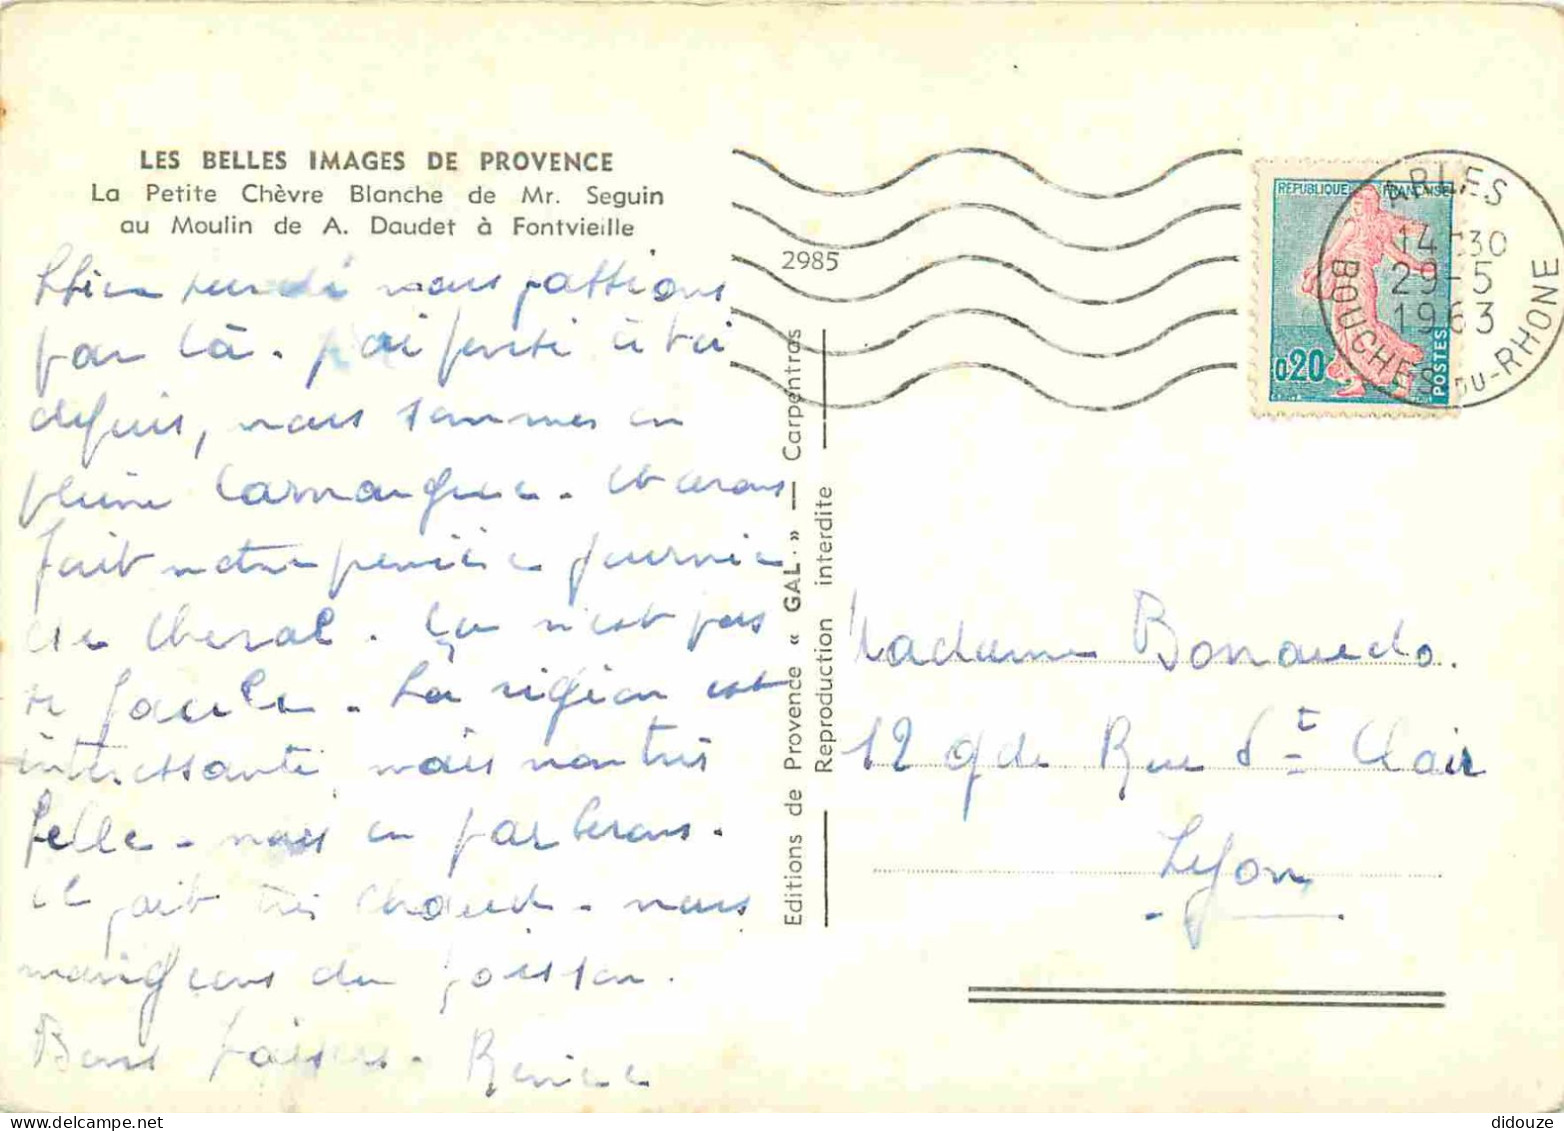 LES BELLES IMAGES DE PROVENCE
La Petite Chèvre Blanche de Mr. Seguin
au Moulin de A. Daudet à Fontvieille
2985
nous passions
par là. j'ai pensé à toi
depuis, nous sommes en
pleine Camargue. avons
fait notre première journée
de cheval. Ça n'est pas
si facile. La région est
intéressante mais non très
belle. nous en parlerons.
il fait très chaud. nous
mangeons du poisson.
Bons baisers.
Editions de Provence « GAL. » — Carpentras
Reproduction interdite
REPUBLIQUE FRANÇAISE
0,20
POSTES
ARLES
14 H 30
29-5
1963
BOUCHES-DU-RHONE
Madame Bonaudo.
12 gde Rue St Clair
Lyon
didouze